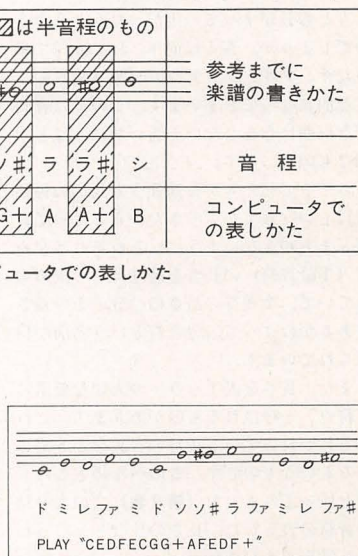 は半音程のもの
参考までに
楽譜の書きかた
ソ♯ ラ ラ♯ シ 音程
G+ A A+ B コンピュータで
の表しかた
ュータでの表しかた
ド ミ レ ファ ミ ド ソ ソ♯ ラ ファ ミ レ ファ♯
PLAY "CEDFECGG+AFEDF+"